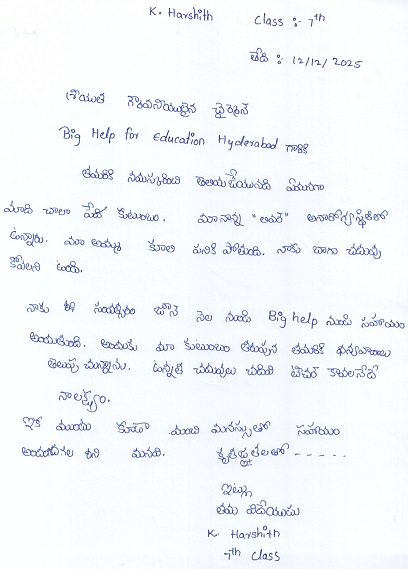 K. Harshith Class :- 7th
తేది : 12/12/2025
శ్రీయుత గౌరవనీయులైన చైర్మెన్
Big Help for Education Hyderabad గారికి
తమరికి నమస్కరించి తెలియచేయునది ఏమనగా
మాది చాలా పేద కుటుంబం. మా నాన్న అనారోగ్యస్థితిలో
ఉన్నారు. మా అమ్మ కూలి పనికి పోతుంది. నాకు బాగా చదువు
కోవాలని ఉంది.
నాకు ఈ సంవత్సరం జూన్ నెల నుండి Big help నుండి సహాయం
అందుతుంది. అందుకు మా కుటుంబం తరుపున తమరికి ధన్యవాదాలు
తెలుపు చున్నాను. ఉన్నత చదువులు చదివి టీచర్ కావలనేదే
నా లక్ష్యం.
ఇక ముందు కూడా మంచి మనస్సుతో సహాయం
అందించగల మనవి. కృతజ్ఞతలతో - - - - -
ఇట్లు
తమ విదేయుడు
K. Harshith
7th Class